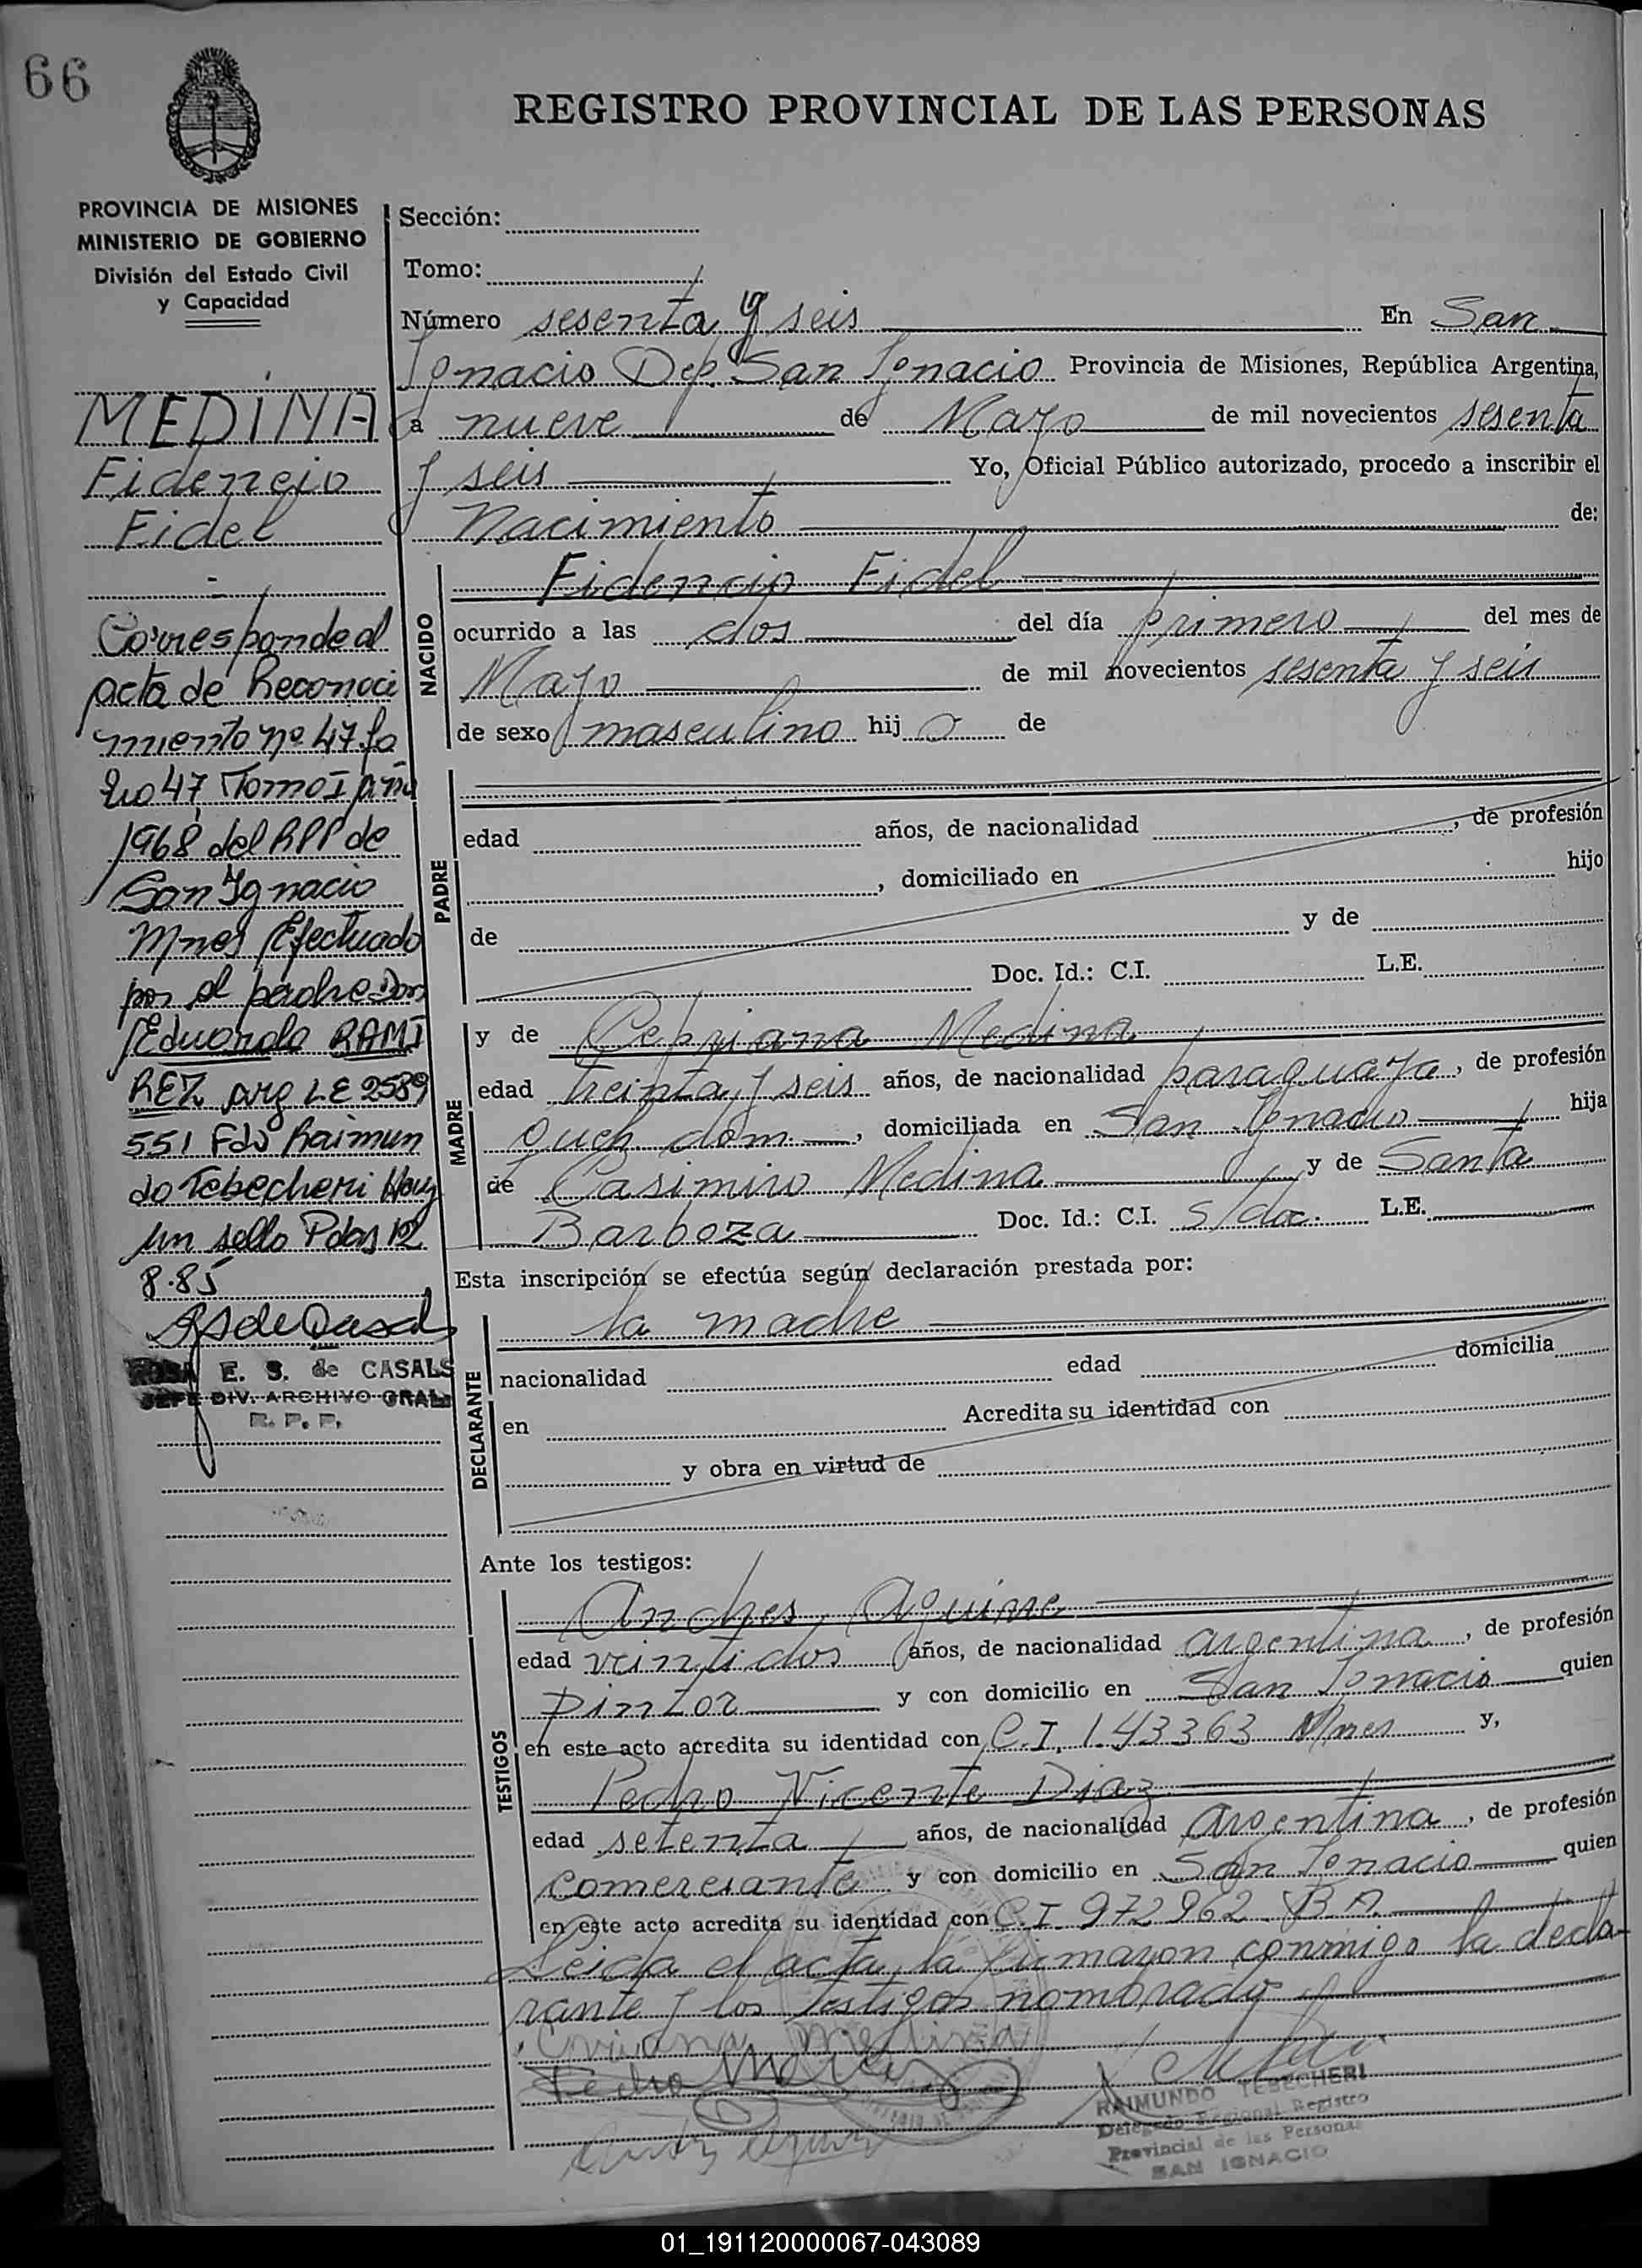 66
REGISTRO PROVINCIAL DE LAS PERSONAS
PROVINCIA DE MISIONES
MINISTERIO DE GOBIERNO
División del Estado Civil
y Capacidad
MEDINA
Fidencio
Fidel
Corresponde al
acta de Reconoci
miento nº 47 fo
lio 47 Tomo I año
1968 del RPP de
San Ignacio
Mnes Efectuado
por el padre Don
Eduardo RAMI
REZ arg LE 2589
551 Fdo Raimun
do Tebecheri Hay
un sello Pdas 12
8.85
ROSA E. S. de CASALS
JEFE DIV. ARCHIVO GRAL.
R. P. P.
Sección:
Tomo:
Número sesenta y seis En San
Ignacio Dep. San Ignacio Provincia de Misiones, República Argentina,
a nueve de Mayo de mil novecientos sesenta
y seis Yo, Oficial Público autorizado, procedo a inscribir el
Nacimiento de:
NACIDO
Fidencio Fidel
ocurrido a las dos del día primero del mes de
Mayo de mil novecientos sesenta y seis
de sexo masculino hijo de
PADRE
edad años, de nacionalidad , de profesión
, domiciliado en hijo
de y de
Doc. Id.: C.I. L.E.
MADRE
y de Cepriana Medina
edad treinta y seis años, de nacionalidad paraguaya, de profesión
queh. dom. , domiciliada en San Ignacio hija
de Casimiro Medina y de Santa
Barboza Doc. Id.: C.I. S/doc. L.E.
Esta inscripción se efectúa según declaración prestada por:
DECLARANTE
la madre
nacionalidad edad domicilia
en Acredita su identidad con
y obra en virtud de
Ante los testigos:
TESTIGOS
Andres Aguirre
edad veintidos años, de nacionalidad argentina, de profesión
pintor y con domicilio en San Ignacio quien
en este acto acredita su identidad con C.I. 143363 Mnes y,
Pedro Vicente Diaz
edad setenta años, de nacionalidad argentina, de profesión
comerciante y con domicilio en San Ignacio quien
en este acto acredita su identidad con C.I. 972962 B.A.
Leida el acta, la firmaron conmigo la decla-
rante y los testigos nombrados
RAIMUNDO TEBECHERI
Delegado Regional Registro
Provincial de las Personas
SAN IGNACIO
01_191120000067-043089